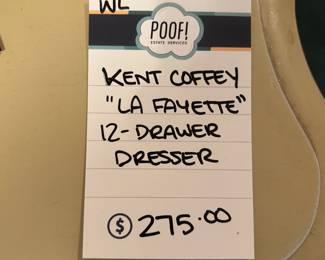 WL
POOF!
ESTATE SERVICES
KENT COFFEY
"LA FAYETTE"
12-DRAWER
DRESSER
$ 275.00